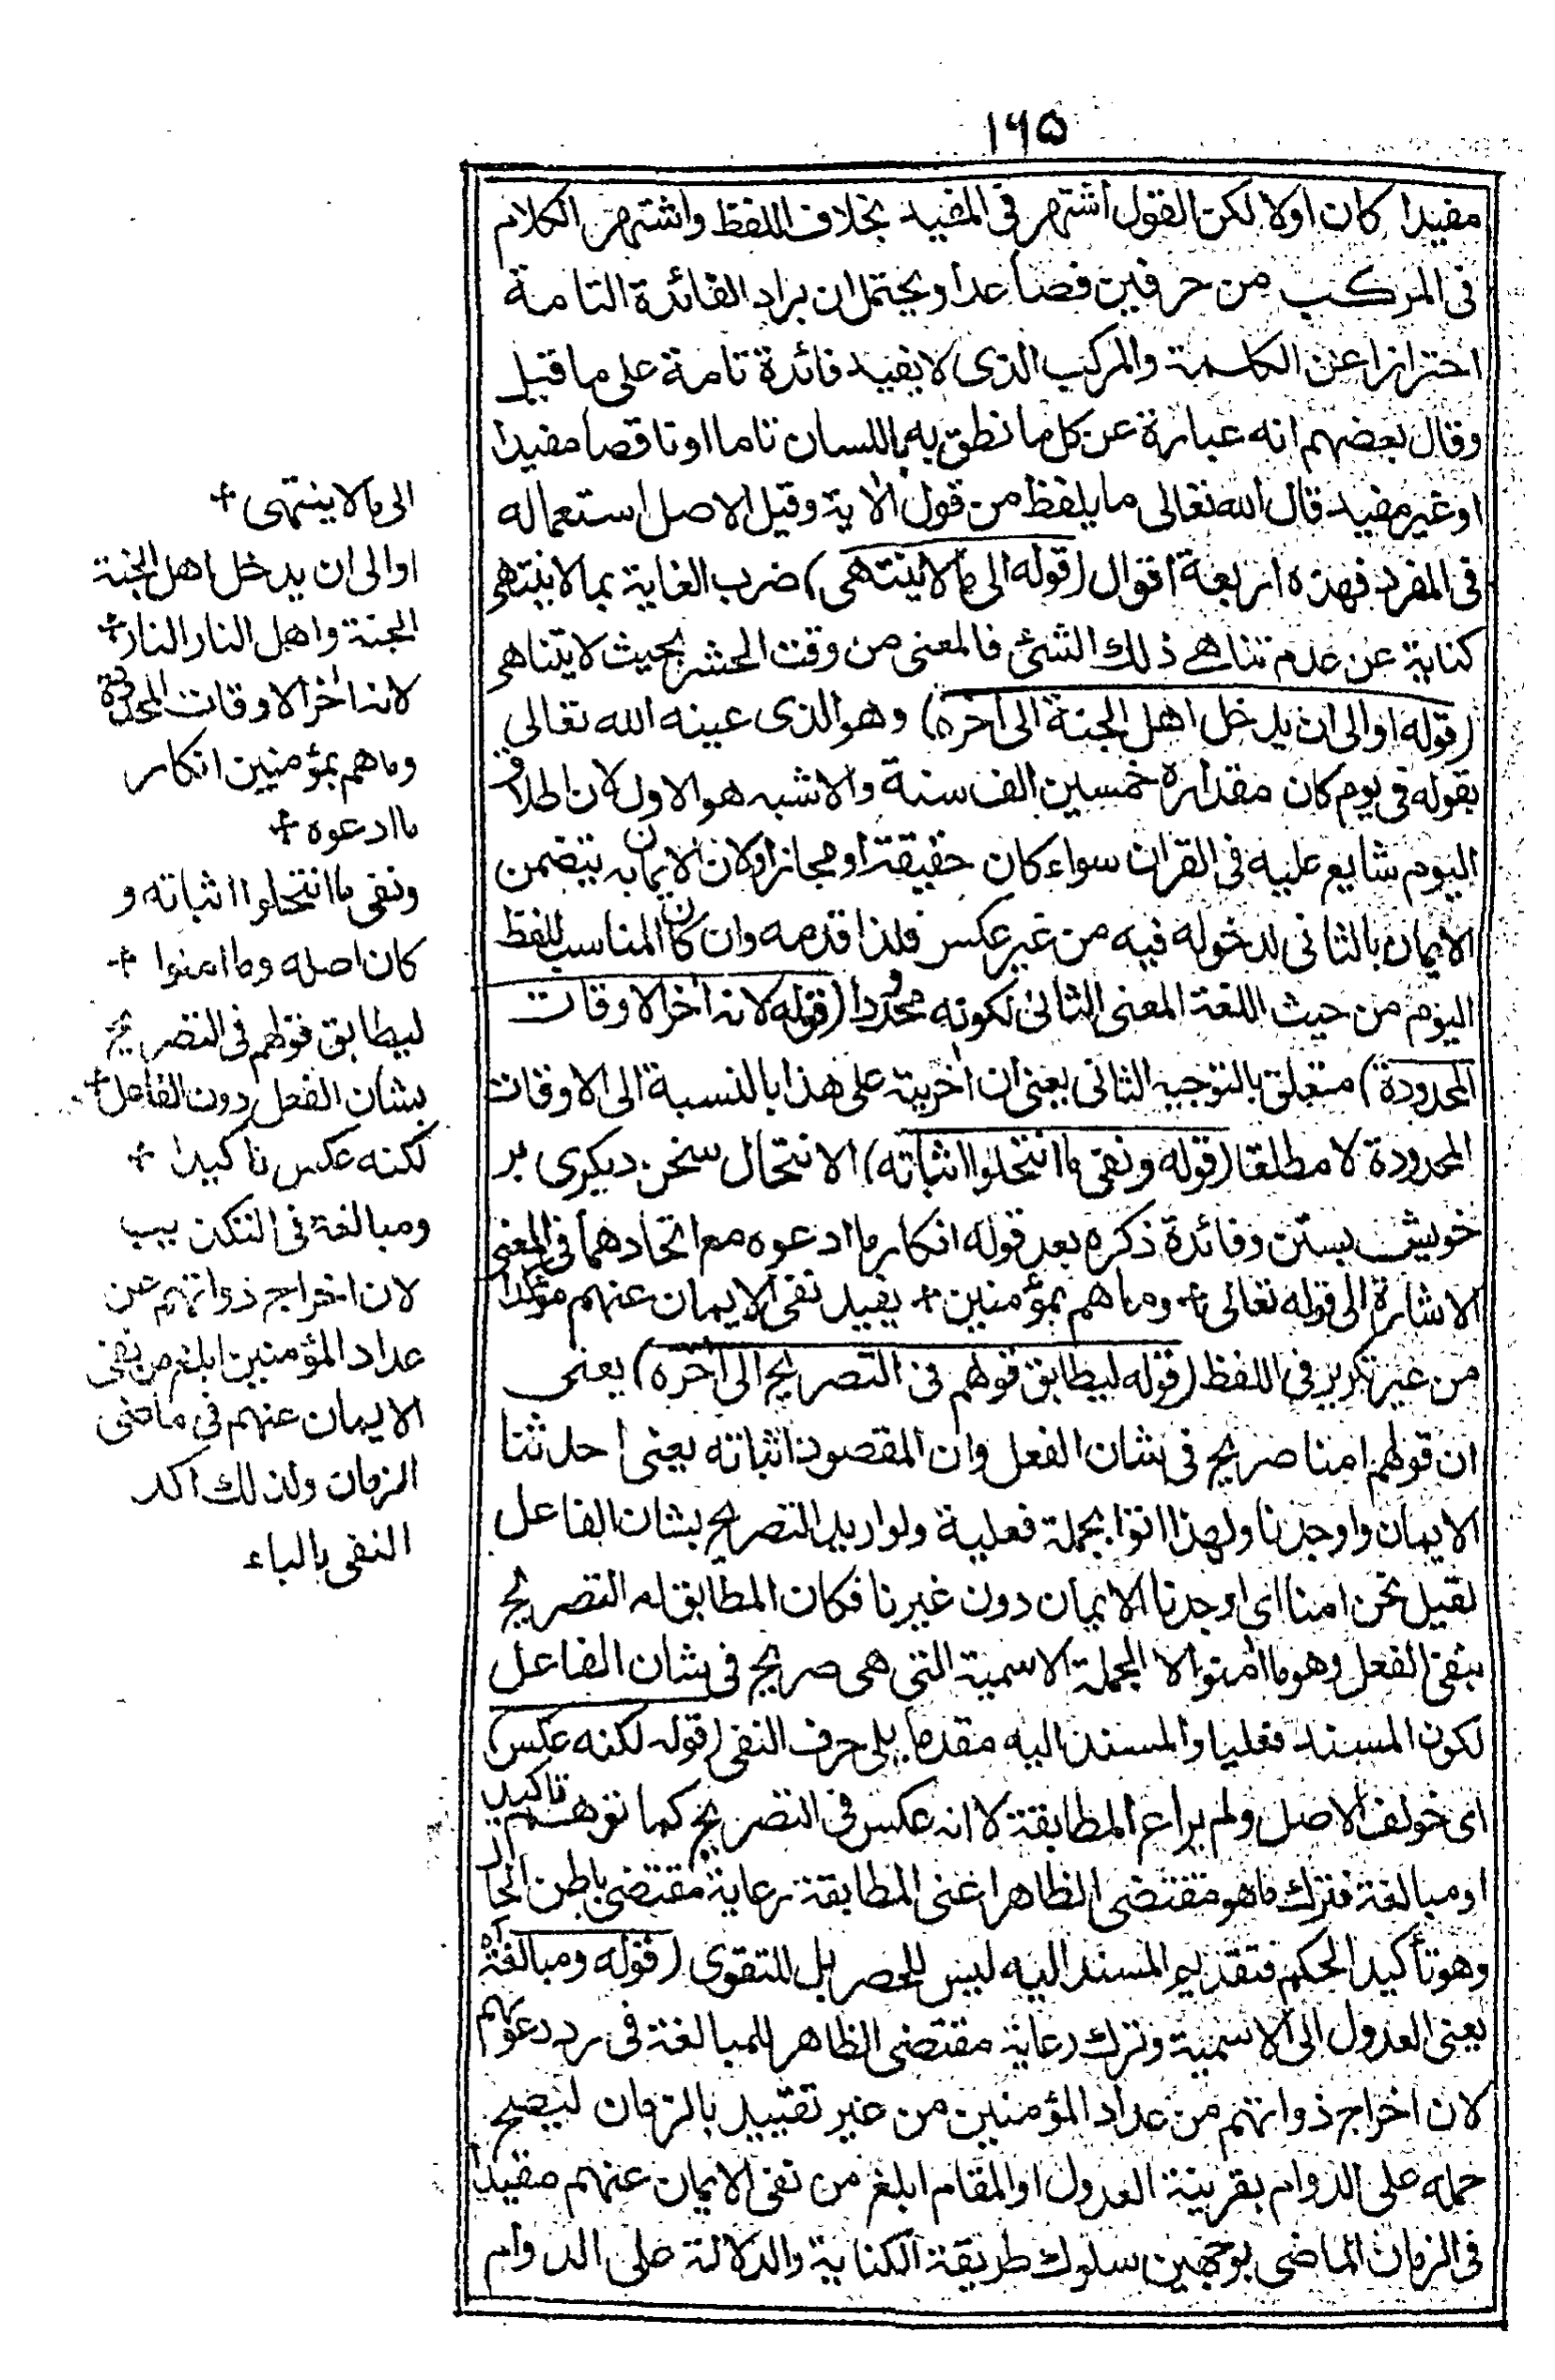 ١٦٥
مفيدا كان اولا لكن القول اشتهر فى المفيد بخلاف اللفظ واشتهر الكلام
فى المركب من حرفين فصاعدا ويحتمل ان يراد الفائدة التامة
احترازا عن الكلمة والمركب الذى لا يفيد فائدة تامة على ما قيل
وقال بعضهم انه عبارة عن كل ما نطق به باللسان تاما او ناقصا مفيدا
او غير مفيد قال الله تعالى ما يلفظ من قول الاية وقيل الاصل استعماله
فى المفرد فهذه اربعة اقوال (قوله الى ما لا ينتهى) ضرب الغاية بما لا ينتهى
كناية عن عدم تناهى ذلك الشئ فالمعنى من وقت الحشر بحيث لا يتناهى
(قوله او الى ان يدخل اهل الجنة الى اخره) وهو الذى عينه الله تعالى
بقوله فى يوم كان مقداره خمسين الف سنة والاشبه هو الاول لان اطلاق
اليوم شايع عليه فى القران سواء كان حقيقة او مجازا ولان الايمان به يتضمن
الايمان بالثانى لدخوله فيه من غير عكس فلذا قدمه وان كان المناسب للفظ
اليوم من حيث اللغة المعنى الثانى لكونه محدودا (قوله لانه اخر الاوقات
المحدودة) متعلق بالتوجيه الثانى يعنى ان اخريته على هذا بالنسبة الى الاوقات
المحدودة لا مطلقا (قوله ونفى ما انتحلوا اثباته) الانتحال سخن ديكرى بر
خويش بستن وفائدة ذكره بعد قوله انكار ما ادعوه مع اتحادهما فى المعنى
الاشارة الى قوله تعالى + وما هم بمؤمنين + يفيد نفى الايمان عنهم مؤكدا
من غير تكرير فى اللفظ (قوله ليطابق قولهم فى التصريح الى اخره) يعنى
ان قولهم امنا صريح فى شان الفعل وان المقصود اثباته يعنى احدثنا
الايمان واوجدنا ولهذا اتوا بجملة فعلية ولو اريد التصريح بشان الفاعل
لقيل نحن امنا اى اوجدنا الايمان دون غيرنا فكان المطابق له التصريح
بنفى الفعل وهو ما امنوا لا الجملة الاسمية التى هى صريح فى شان الفاعل
لكون المسند فعليا والمسند اليه مقدما يلى حرف النفى (قوله لكنه عكس تاكيدا)
اى خولف الاصل ولم يراع المطابقة لا انه عكس فى التصريح كما توهم
او مبالغة فترك ما هو مقتضى الظاهر اعنى المطابقة رعاية مقتضى باطن الحال
وهو تأكيد الحكم فتقديم المسند اليه ليس للحصر بل للتقوى (قوله ومبالغة اه)
يعنى العدول الى الاسمية وترك رعاية مقتضى الظاهر للمبالغة فى رد دعوٰهم
لان اخراج ذواتهم من عداد المؤمنين من غير تقييد بالزمان ليصح
حمله على الدوام بقرينة العدول او المقام ابلغ من نفى الايمان عنهم مقيدا
فى الزمان الماضى بوجهين سلوك طريقة الكناية والدلالة على الدوام
الى ما لا ينتهى +
او الى ان يدخل اهل الجنة
الجنة واهل النار النار +
لانه اخر الاوقات المحدودة
وما هم بمؤمنين انكار
ما ادعوه +
ونفى ما انتحلوا اثباته و
كان اصله وما امنوا +
ليطابق قولهم فى التصريح
بشان الفعل دون الفاعل +
لكنه عكس تاكيدا +
ومبالغة فى التكذيب
لان اخراج ذواتهم عن
عداد المؤمنين ابلغ من نفى
الايمان عنهم فى ماضى
الزمان ولذلك اكد
النفى بالباء